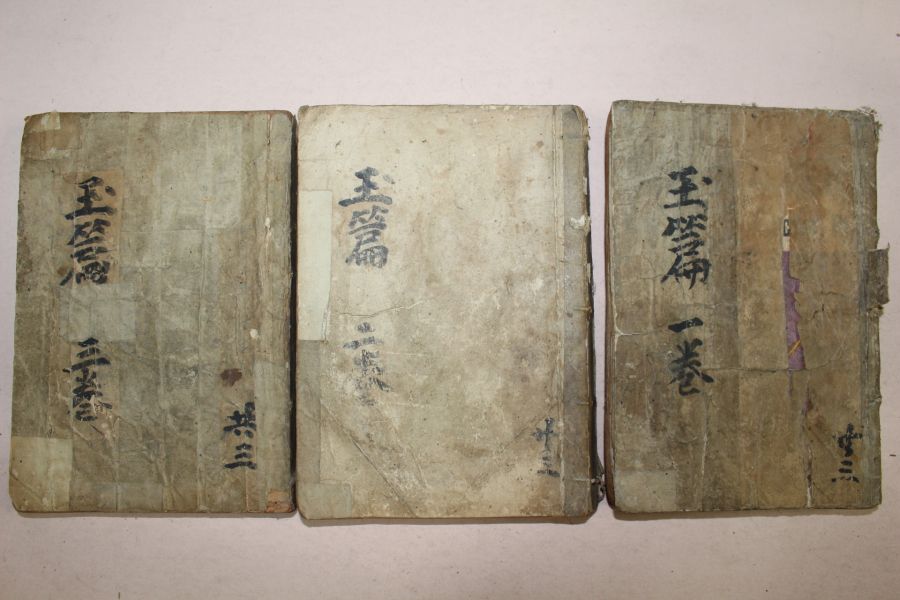 玉篇 一卷
共三
玉篇 二卷
共三
玉篇 三卷
共三